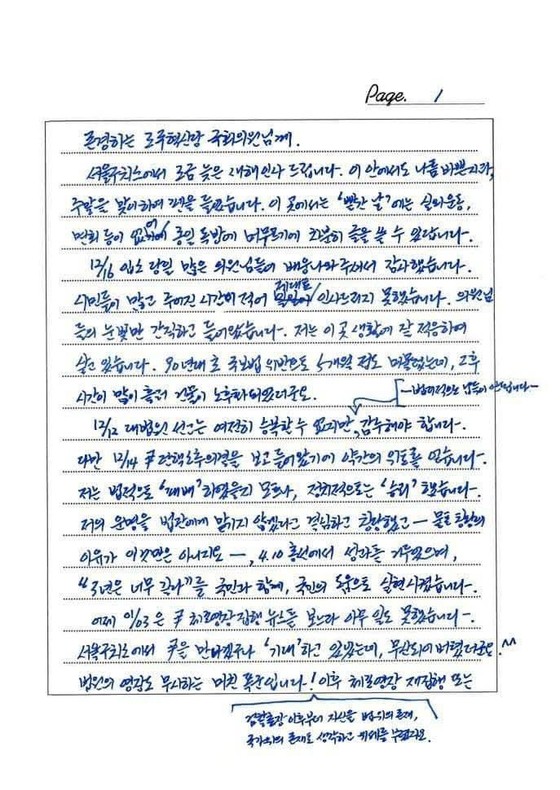 Page. 1
존경하는 조국혁신당 국회의원님께.
서울구치소에서 조금 늦은 새해인사 드립니다. 이 안에서도 나름 바쁜지라,
주말을 맞이하여 펜을 들었습니다. 이 곳에서는 '빨간 날'에는 실외운동,
면회 등이 없어 종일 독방에 머무르기에 차분히 글을 쓸 수 있답니다.
12/16 입소 당일 많은 의원님들이 배웅나와주셔서 감사했습니다.
제대로
시민들이 많고 주어진 시간이 적어 인사드리지 못했습니다. 의원님
들의 눈빛만 간직하고 들어왔습니다. 저는 이 곳 생활에 잘 적응하여
살고 있습니다. 90년대 초 국보법 위반으로 5개월 정도 머물렀는데, 그후
시간이 많이 흘러 건물이 노후화되었더군요.
—법리적으로 납득이 안되지만—
12/12 대법원 선고는 여전히 승복할 수 없지만, 감수해야 합니다.
다만 12/14 尹 탄핵소추의결을 보고 들어왔기에 약간의 위로를 얻습니다.
저는 법적으로 '패배'하였을지 모르나, 정치적으로는 '승리'했습니다.
저의 운명을 법관에게 맡기지 않겠다고 결심하고 창당했고 — 물론 창당의
이유가 이것만은 아니지요 —, 4.10 총선에서 성과를 거두었으며,
"3년은 너무 길다"를 국민과 함께, 국민의 도움으로 실현시켰습니다.
어제 01/03은 尹 체포영장 집행 뉴스를 보느라 아무 일도 못했습니다.
서울구치소에서 尹을 만나겠구나 '기대'하고 있었는데, 무산되어 버렸더군요.^^
법원의 영장도 무시하는 미친 폭군입니다! 이후 체포영장 재집행 또는
검찰총장 이후부터 자신을 법 위의 존재,
국가 위의 존재로 생각하고 행패를 부렸지요.